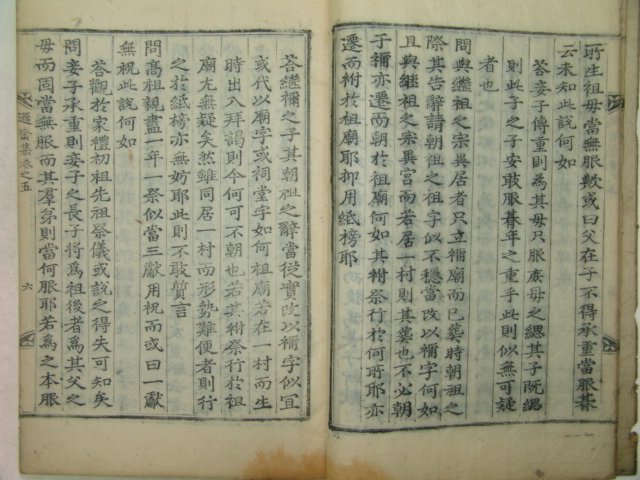 所生祖母當無服歟或曰父在子不得承重當服朞
云未知此說何如
答妾子傳重則為其母只服庶母之緦其子旣緦
則此子之子安敢服朞年之重乎此則似無可疑
者也
問與繼祖之宗異居者只立禰廟而已葬時朝祖之
際其告辭請朝祖之祖字似不穩當改以禰字何如
且與繼祖之宗異宮而若居一村則其葬也不必朝
于禰亦遷而朝於祖廟何如其祔祭行於何所耶亦
遷而祔於祖廟耶抑用紙榜耶
答繼禰之子其朝祖之辭當從實改以禰字似宜
或代以廟字或祠堂字如何祖廟若在一村而生
時出入拜謁則今何可不朝也若其祔祭行於祖
廟尤無疑矣然雖同居一村而形勢難便者則行
之於紙榜亦無妨耶此則不敢質言
問高祖親盡一年一祭似當三獻用祝而或曰一獻
無祝此說何如
答觀於家禮初祖先祖祭儀或說之得失可知矣
問妾子承重則妾子之長子將爲祖後者爲其父之
母而固當無服而其羣弟則當何服耶若爲之本服
集卷之五
六